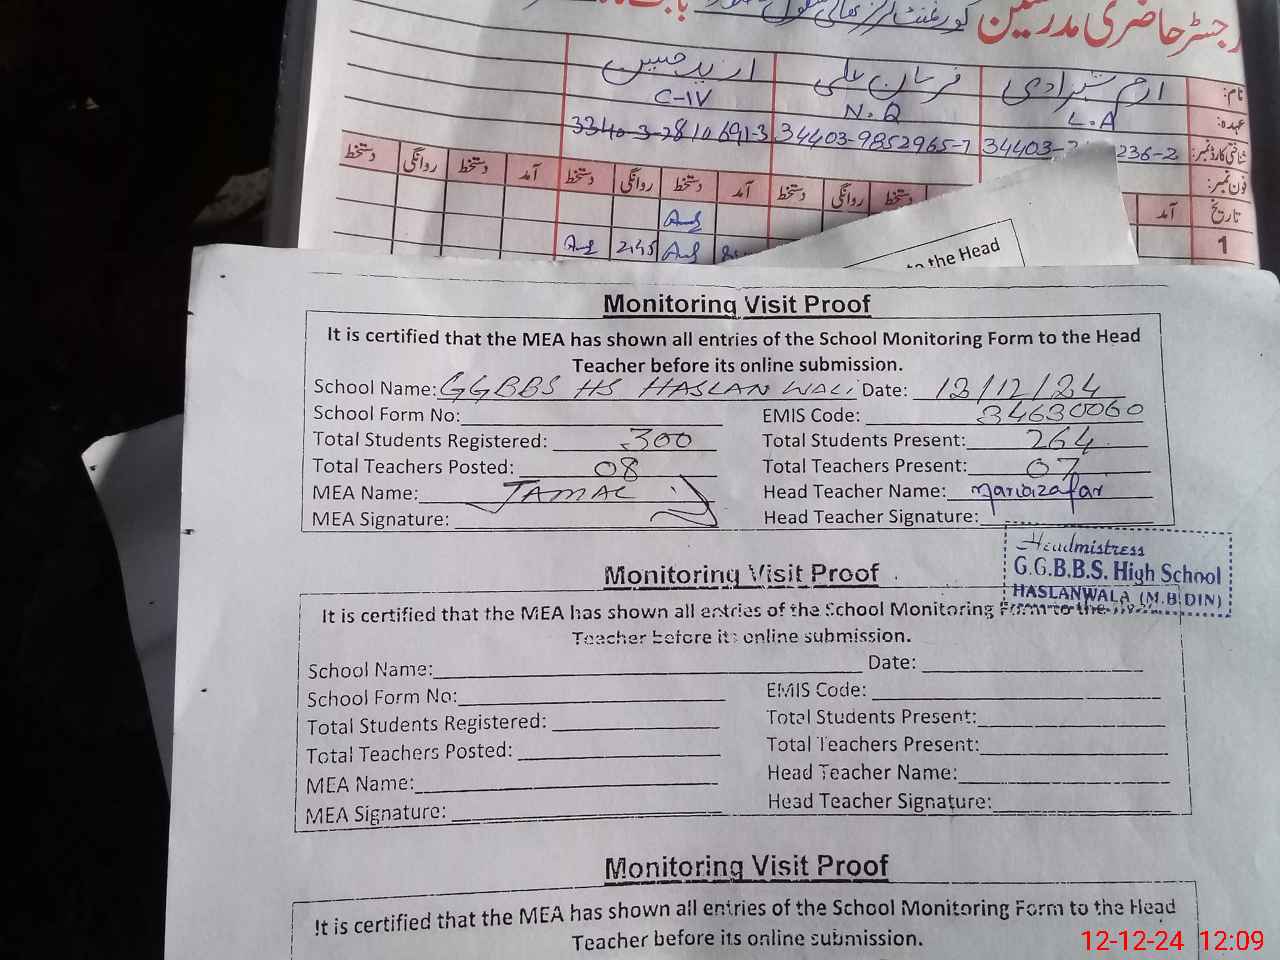 رجسٹر حاضری مدرسین گورنمنٹ گرلز ہائی سکول
نام: ارم شہزادی فرمان علی
عہدہ: L.A N.Q C-IV
شناختی کارڈ نمبر: 34403- 236-2 34403-9852965-7 33403-2810691-3
فون نمبر:
تاریخ آمد دستخط روانگی دستخط آمد دستخط روانگی دستخط آمد دستخط روانگی دستخط
1
2.45
to the Head
Monitoring Visit Proof
It is certified that the MEA has shown all entries of the School Monitoring Form to the Head
Teacher before its online submission.
School Name: GGBBS HS HASLAN WALI Date: 12/12/24
School Form No: EMIS Code: 34630060
Total Students Registered: 300 Total Students Present: 264
Total Teachers Posted: 08 Total Teachers Present: 07
MEA Name: JAMAL Head Teacher Name:
MEA Signature: Head Teacher Signature:
Headmistress
G.G.B.B.S. High School
HASLANWALA (M.B.DIN)
Monitoring Visit Proof
It is certified that the MEA has shown all entries of the School Monitoring Form to the Head
Teacher before its online submission.
School Name: Date:
School Form No: EMIS Code:
Total Students Registered: Total Students Present:
Total Teachers Posted: Total Teachers Present:
MEA Name: Head Teacher Name:
MEA Signature: Head Teacher Signature:
Monitoring Visit Proof
It is certified that the MEA has shown all entries of the School Monitoring Form to the Head
Teacher before its online submission.
12-12-24 12:09